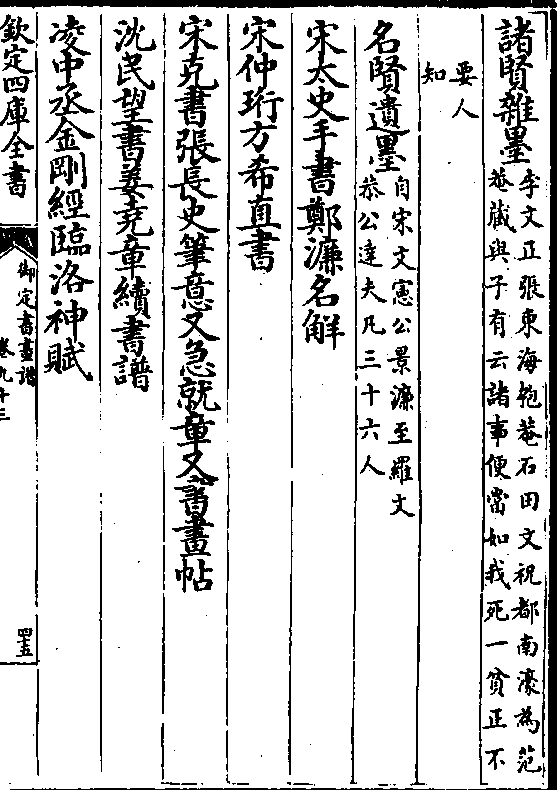 諸賢雜墨
李文正張東海匏菴石田文祝都南濠為范
菴蔵與子有云諸事便當如我死一貧正不
要人
知
名賢遺墨
自宋文憲公景濓至羅文
恭公達夫凡三十六人
宋太史手書鄭濓名解
宋仲珩方希直書
宋克書張長史筆意又急就章又書畫帖
沈民望書姜堯章續書譜
凌中丞金剛經臨洛神賦
欽定四庫全書
御定書畫譜
卷九十三
四五